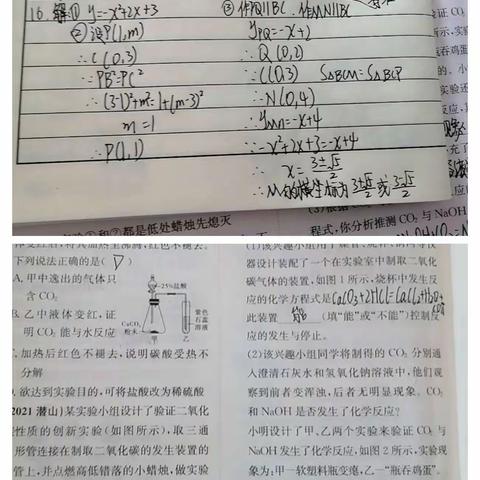 16. 解① y=-x²+2x+3
② 设P(1,m)
∵C(0,3)
∵PB²=PC²
∴(3-1)²+m²=1+(m-3)²
m=1
∴P(1,1)
③作PQ∥BC.作MN∥BC
yPQ=-x+2
∴Q(0,2)
∵C(0,3) S△BCM=S△BCP
∴N(0,4)
∴yMN=-x+4
∴-x²+2x+3=-x+4
∴x=3±√5/2
∴M的横坐标为3+√5/2或3-√5/2
证CO₂
都是低处蜡烛先熄灭
程式,你分析推测CO₂与NaOH
下列说法正确的是( D )
A.甲中逸出的气体只
含CO₂
B.乙中液体变红,证
明CO₂能与水反应
25%盐酸
CaCO₃
粉末
紫色
石蕊
溶液
甲 乙
加热后红色不褪去,说明碳酸受热不
分解
欲达到实验目的,可将盐酸改为稀硫酸
2021 潜山)某实验小组设计了验证二氧化
性质的创新实验(如图所示),取三通
形管连接在制取二氧化碳的发生装置的
管上,并点燃高低错落的小蜡烛,做实验
器设计装配了一个在实验室中制取二氧化
碳气体的装置,如图1所示,烧杯中发生反
应的化学方程式是CaCO₃+2HCl=CaCl₂+H₂O+CO₂↑
此装置 能 (填“能”或“不能”)控制反
应的发生与停止。
(2)该兴趣小组同学将制得的CO₂分别通
入澄清石灰水和氢氧化钠溶液中,他们观
察到前者变浑浊,后者无明显现象。CO₂
和NaOH是否发生了化学反应?
小明设计了甲、乙两个实验来验证CO₂与
NaOH发生了化学反应,如图2所示,实验现
象为:甲—软塑料瓶变瘪,乙—“瓶吞鸡蛋”。